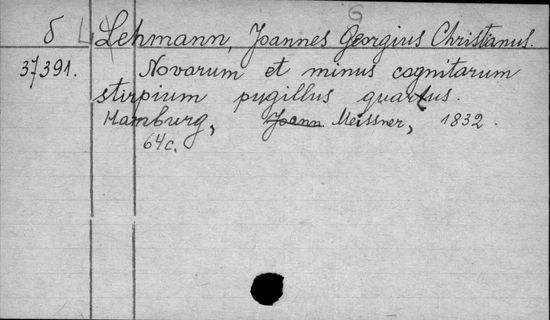 G
б Lehmann, Joannes Georgius Christianus.
37391. Novarum et minus cognitarum
stirpium pugillus quartus.
Hamburg, Joann Meissner, 1832.
64c.